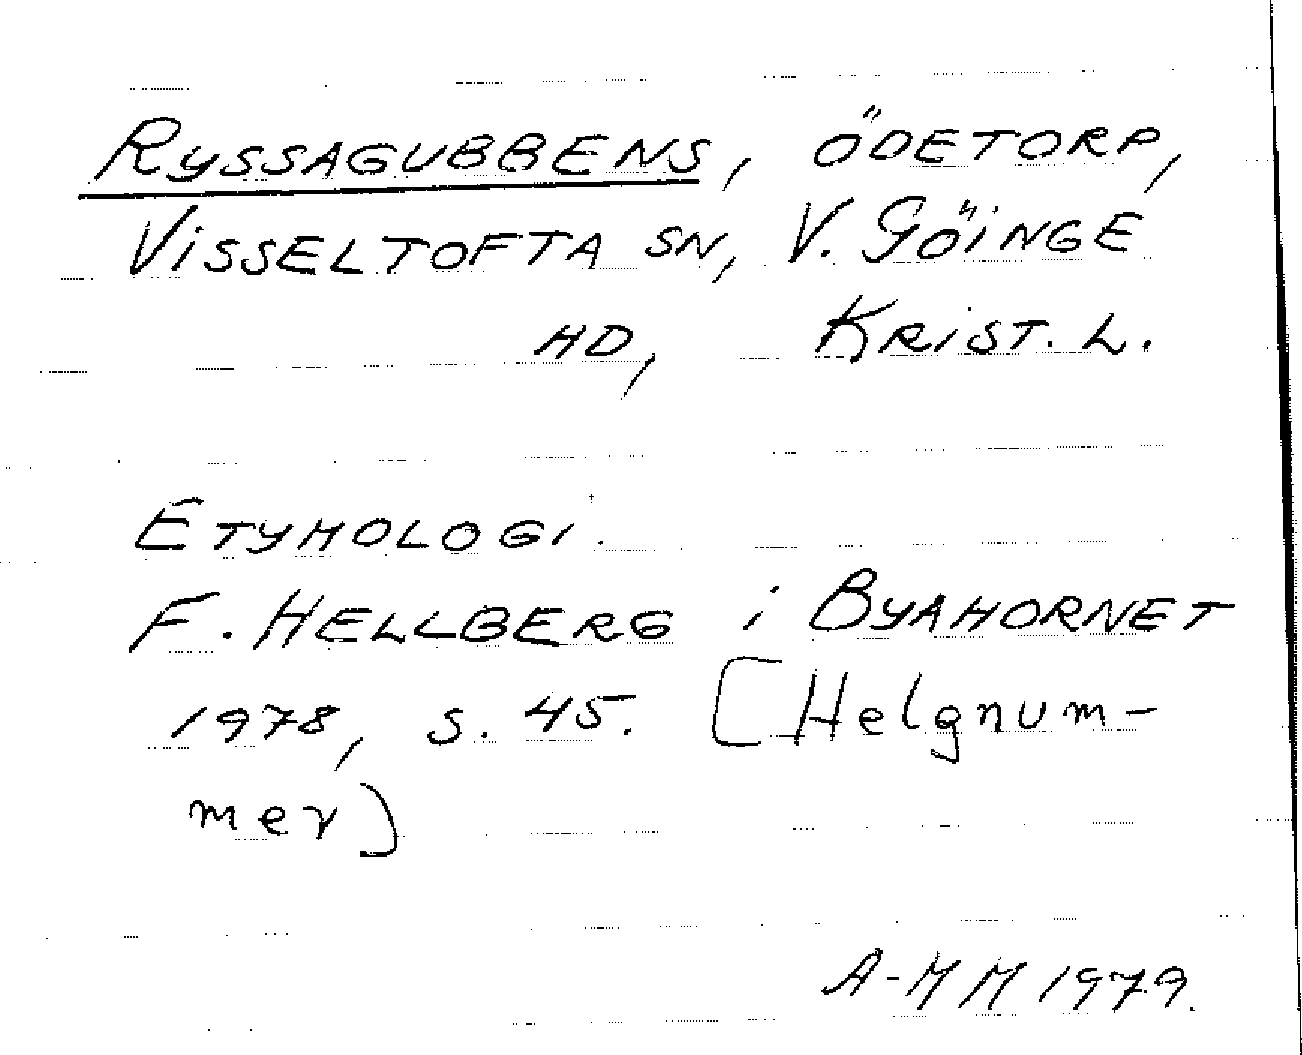 RYSSAGUBBENS, ÖDETORP,
VISSELTOFTA SN, V. GÖINGE
HD, KRIST. L.
ETYMOLOGI.
F. HELLBERG i BYAHORNET
1978, S. 45. [Helgnum-
mer]
A-MM 1979.